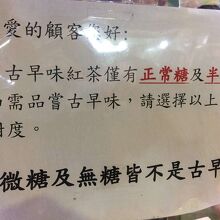 愛的顧客您好:
古早味紅茶僅有正常糖及半
需品嘗古早味，請選擇以上
甜度。
微糖及無糖皆不是古早